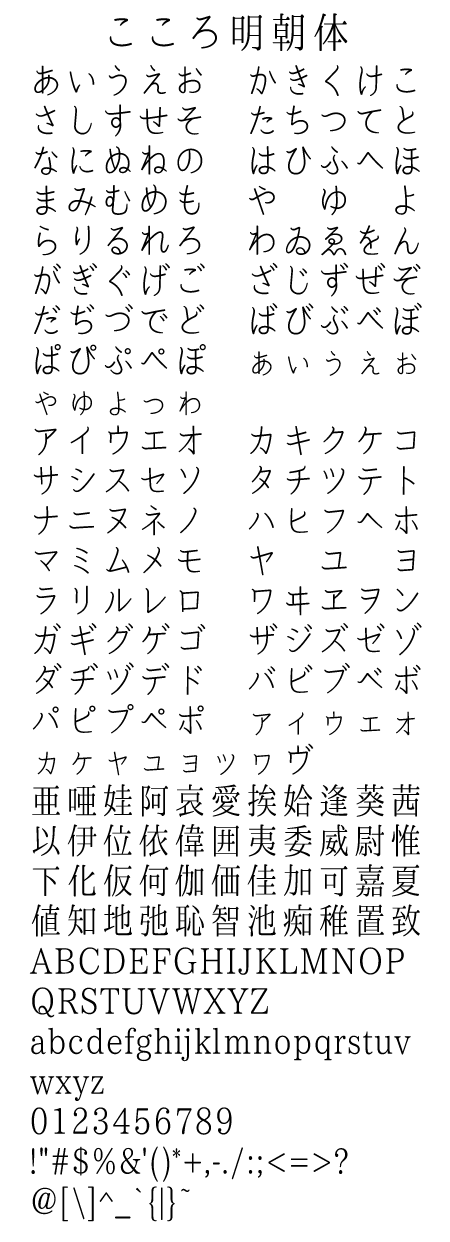 こころ明朝体
あいうえお　かきくけこ
さしすせそ　たちつてと
なにぬねの　はひふへほ
まみむめも　や　ゆ　よ
らりるれろ　わゐゑをん
がぎぐげご　ざじずぜぞ
だぢづでど　ばびぶべぼ
ぱぴぷぺぽ　ぁぃぅぇぉ
ゃゅょっゎ
アイウエオ　カキクケコ
サシスセソ　タチツテト
ナニヌネノ　ハヒフヘホ
マミムメモ　ヤ　ユ　ヨ
ラリルレロ　ワヰヱヲン
ガギグゲゴ　ザジズゼゾ
ダヂヅデド　バビブベボ
パピプペポ　ァィゥェォ
ヵヶャュョッヮヴ
亜唖娃阿哀愛挨姶逢葵茜
以伊位依偉囲夷委威尉惟
下化仮何伽価佳加可嘉夏
値知地弛恥智池痴稚置致
ABCDEFGHIJKLMNOP
QRSTUVWXYZ
abcdefghijklmnopqrstuv
wxyz
0123456789
!"#$%&'()*+,-./:;<=>?
@[\]^_`{|}~